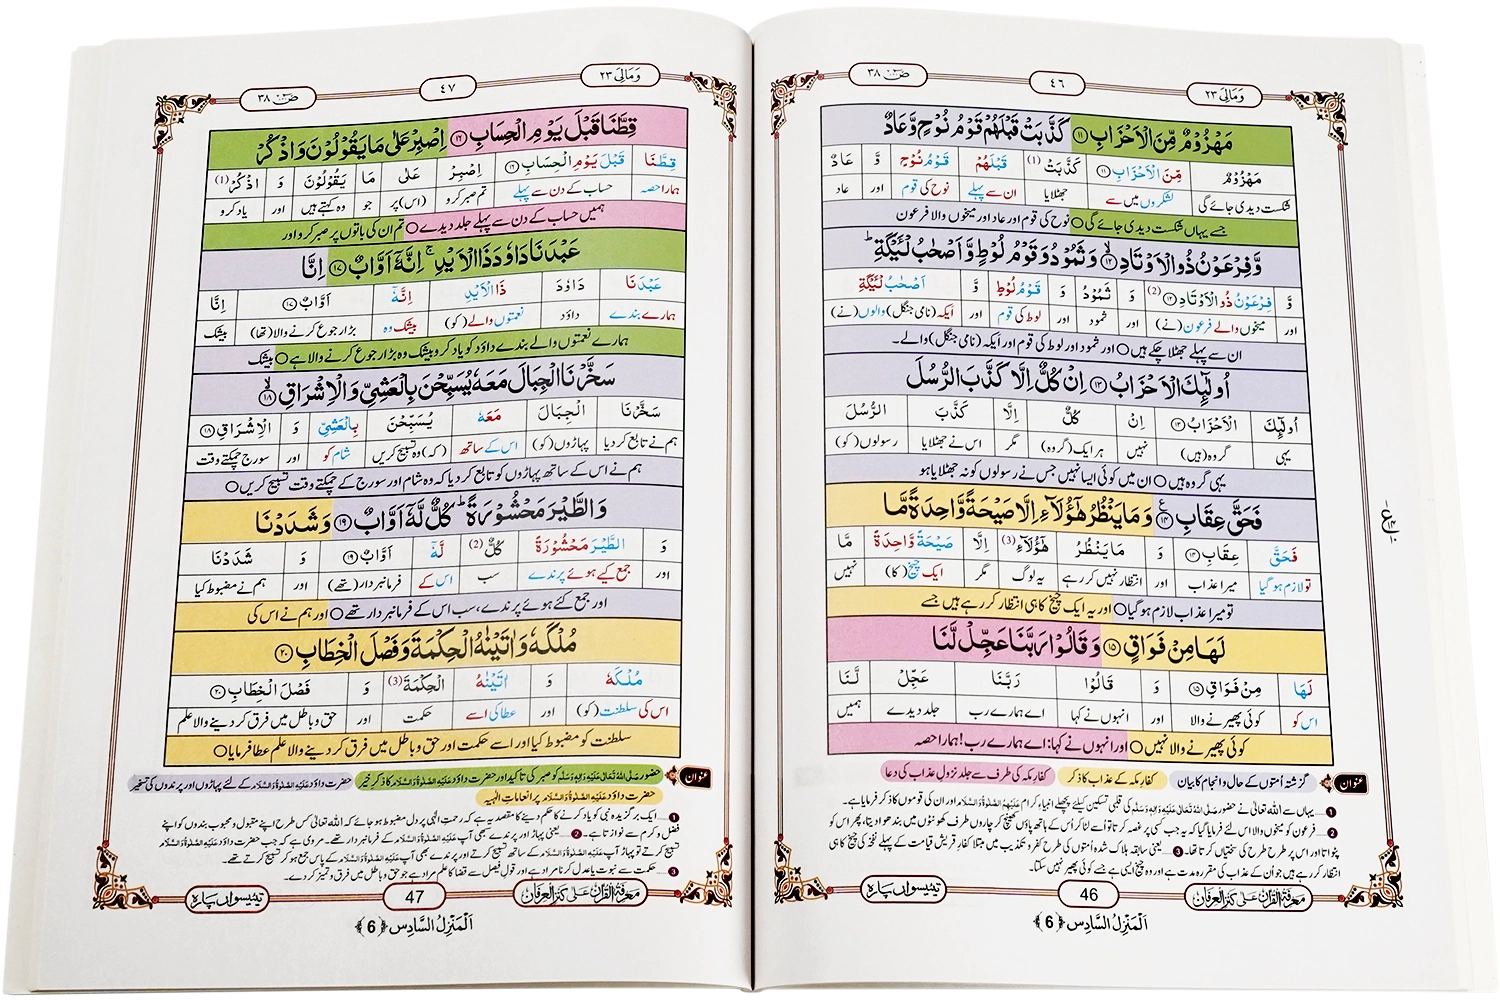 ص ٣٨
٤٦
وَمَالِیَ ٢٣
مَهْزُوْمٌ مِّنَ الْاَحْزَابِ ⑪ كَذَّبَتْ قَبْلَهُمْ قَوْمُ نُوْحٍ وَّعَادٌ
مَهْزُوْمٌ مِّنَ الْاَحْزَابِ ⑪ كَذَّبَتْ (1) قَبْلَهُمْ قَوْمُ نُوْحٍ وَّ عَادٌ
شکست دیدی جائے گی لشکروں میں سے جھٹلایا ان سے پہلے نوح کی قوم اور عاد
جسے یہاں شکست دیدی جائے گی ○ نوح کی قوم اور عاد اور میخوں والا فرعون
وَّفِرْعَوْنُ ذُو الْاَوْتَادِ ⑫ وَثَمُوْدُ وَقَوْمُ لُوْطٍ وَّاَصْحٰبُ لْـَٔیْكَةِ ؕ
وَّ فِرْعَوْنُ ذُو الْاَوْتَادِ ⑫ (2) وَ ثَمُوْدُ وَ قَوْمُ لُوْطٍ وَّ اَصْحٰبُ لْـَٔیْكَةِ
اور میخوں والے فرعون (نے) اور ثمود اور لوط کی قوم اور ایکہ (نامی جنگل) والوں (نے)
ان سے پہلے جھٹلا چکے ہیں ○ اور ثمود اور لوط کی قوم اور ایکہ (نامی جنگل) والے۔
اُولٰٓىٕكَ الْاَحْزَابُ ⑬ اِنْ كُلٌّ اِلَّا كَذَّبَ الرُّسُلَ
اُولٰٓىٕكَ الْاَحْزَابُ ⑬ اِنْ كُلٌّ اِلَّا كَذَّبَ الرُّسُلَ
یہی گروہ (ہیں) نہیں ہر ایک (گروہ) مگر اس نے جھٹلایا رسولوں (کو)
یہی گروہ ہیں ○ ان میں کوئی ایسا نہیں جس نے رسولوں کو نہ جھٹلایا ہو
فَحَقَّ عِقَابِ ⑭ وَمَا یَنْظُرُ هٰۤؤُلَآءِ اِلَّا صَیْحَةً وَّاحِدَةً مَّا
فَحَقَّ عِقَابِ ⑭ وَ مَا یَنْظُرُ هٰۤؤُلَآءِ (3) اِلَّا صَیْحَةً وَّاحِدَةً مَّا
تو لازم ہو گیا میرا عذاب اور انتظار نہیں کر رہے یہ لوگ مگر ایک چیخ (کا) نہیں
تو میرا عذاب لازم ہو گیا ○ اور یہ ایک چیخ کا ہی انتظار کر رہے ہیں جسے
لَهَا مِنْ فَوَاقٍ ⑮ وَقَالُوْا رَبَّنَا عَجِّلْ لَّنَا
لَهَا مِنْ فَوَاقٍ ⑮ وَ قَالُوْا رَبَّنَا عَجِّلْ لَّنَا
اس کو کوئی پھیرنے والا اور انہوں نے کہا اے ہمارے رب جلد دیدے ہمیں
کوئی پھیرنے والا نہیں ○ اور انہوں نے کہا: اے ہمارے رب! ہمارا حصہ
عنوان گزشتہ اُمتوں کے حال و انجام کا بیان کفارِ مکہ کے عذاب کا ذکر کفارِ مکہ کی طرف سے جلد نزولِ عذاب کی دعا
❶ یہاں سے اللہ تعالیٰ نے حضور صَلَّی اللہُ تَعَالٰی عَلَیْہِ وَاٰلِہٖ وَسَلَّمَ کی قلبی تسکین کیلئے پچھلے انبیاءِ کرام عَلَیْہِمُ الصَّلٰوۃُ وَالسَّلَام اور ان کی قوموں کا ذکر فرمایا ہے۔
❷ فرعون کو میخوں والا اس لئے فرمایا گیا کہ یہ جب کسی پر غصہ کرتا تو اُسے لٹا کر اُس کے ہاتھ پاؤں کھینچ کر چاروں طرف کھونٹوں میں بندھوا دیتا، پھر اس کو
پٹواتا اور اس پر طرح طرح کی سختیاں کرتا تھا۔ ❸ یعنی سابقہ ہلاک شدہ اُمتوں کی طرح کفر و تکذیب میں مبتلا کفارِ قریش قیامت کے پہلے نفخہ کی چیخ کا ہی
انتظار کر رہے ہیں جو اُن کے عذاب کی مقررہ مدت ہے اور وہ چیخ ایسی ہے جسے کوئی پھیر نہیں سکتا۔
معرفۃ القرآن علی کنز العرفان
46
تیئیسواں پارہ
اَلْمَنْزِلُ السَّادِس ﴿6﴾
ص ٣٨
٤٧
وَمَالِیَ ٢٣
قِطَّنَا قَبْلَ یَوْمِ الْحِسَابِ ⑯ اِصْبِرْ عَلٰى مَا یَقُوْلُوْنَ وَاذْكُرْ
قِطَّنَا قَبْلَ یَوْمِ الْحِسَابِ ⑯ اِصْبِرْ عَلٰى مَا یَقُوْلُوْنَ وَ اذْكُرْ (1)
ہمارا حصہ حساب کے دن سے پہلے تم صبر کرو (اس) پر جو وہ کہتے ہیں اور یاد کرو
ہمیں حساب کے دن سے پہلے جلد دیدے ○ تم ان کی باتوں پر صبر کرو اور
عَبْدَنَا دَاوٗدَ ذَا الْاَیْدِ ۚ اِنَّهٗۤ اَوَّابٌ ⑰ اِنَّا
عَبْدَنَا دَاوٗدَ ذَا الْاَیْدِ اِنَّهٗۤ اَوَّابٌ ⑰ اِنَّا
ہمارے بندے داؤد نعمتوں والے (کو) بیشک وہ بڑا رجوع کرنے والا (تھا) بیشک
ہمارے نعمتوں والے بندے داؤد کو یاد کرو بیشک وہ بڑا رجوع کرنے والا ہے ○ بیشک
سَخَّرْنَا الْجِبَالَ مَعَهٗ یُسَبِّحْنَ بِالْعَشِیِّ وَالْاِشْرَاقِ ⑱
سَخَّرْنَا الْجِبَالَ مَعَهٗ یُسَبِّحْنَ بِالْعَشِیِّ وَ الْاِشْرَاقِ ⑱
ہم نے تابع کر دیا پہاڑوں (کو) اس کے ساتھ (کہ) وہ تسبیح کریں شام کو اور سورج چمکتے وقت
ہم نے اس کے ساتھ پہاڑوں کو تابع کر دیا کہ وہ شام اور سورج کے چمکتے وقت تسبیح کریں ○
وَالطَّیْرَ مَحْشُوْرَةً ؕ كُلٌّ لَّهٗۤ اَوَّابٌ ⑲ وَشَدَدْنَا
وَ الطَّیْرَ مَحْشُوْرَةً كُلٌّ (2) لَّهٗۤ اَوَّابٌ ⑲ وَ شَدَدْنَا
اور جمع کیے ہوئے پرندے سب اس کے فرمانبردار (تھے) اور ہم نے مضبوط کیا
اور جمع کئے ہوئے پرندے، سب اس کے فرمانبردار تھے ○ اور ہم نے اس کی
مُلْكَهٗ وَاٰتَیْنٰهُ الْحِكْمَةَ وَفَصْلَ الْخِطَابِ ⑳
مُلْكَهٗ وَ اٰتَیْنٰهُ الْحِكْمَةَ (3) وَ فَصْلَ الْخِطَابِ ⑳
اس کی سلطنت (کو) اور عطا کی اسے حکمت اور حق و باطل میں فرق کر دینے والا علم
سلطنت کو مضبوط کیا اور اسے حکمت اور حق و باطل میں فرق کر دینے والا علم عطا فرمایا ○
عنوان حضور صَلَّی اللہُ تَعَالٰی عَلَیْہِ وَاٰلِہٖ وَسَلَّمَ کو صبر کی تاکید اور حضرت داؤد عَلَیْہِ الصَّلٰوۃُ وَالسَّلَام کا ذکرِ خیر حضرت داؤد عَلَیْہِ الصَّلٰوۃُ وَالسَّلَام کے لئے پہاڑوں اور پرندوں کی تسخیر
حضرت داؤد عَلَیْہِ الصَّلٰوۃُ وَالسَّلَام پر انعاماتِ الٰہیہ
❶ ایک برگزیدہ نبی کو یاد کرنے کا حکم دینے کا مقصد یہ ہے کہ رحمتِ الٰہی پر دل مضبوط ہو جائے کہ اللہ تعالیٰ کس طرح اپنے مقبول و محبوب بندوں کو اپنے
فضل و کرم سے نوازتا ہے۔ ❷ یعنی پہاڑ اور پرندے سبھی آپ عَلَیْہِ الصَّلٰوۃُ وَالسَّلَام کے فرمانبردار تھے۔ مروی ہے کہ جب حضرت داؤد عَلَیْہِ الصَّلٰوۃُ وَالسَّلَام
تسبیح کرتے تو پہاڑ آپ عَلَیْہِ الصَّلٰوۃُ وَالسَّلَام کے ساتھ تسبیح کرتے اور پرندے بھی آپ عَلَیْہِ الصَّلٰوۃُ وَالسَّلَام کے پاس جمع ہو کر تسبیح کرتے تھے۔
❸ حکمت سے نبوت یا عدل کرنا مراد ہے اور قولِ فیصل سے قضا کا علم مراد ہے جو حق و باطل میں فرق و تمیز کر دے۔
معرفۃ القرآن علی کنز العرفان
47
تیئیسواں پارہ
اَلْمَنْزِلُ السَّادِس ﴿6﴾